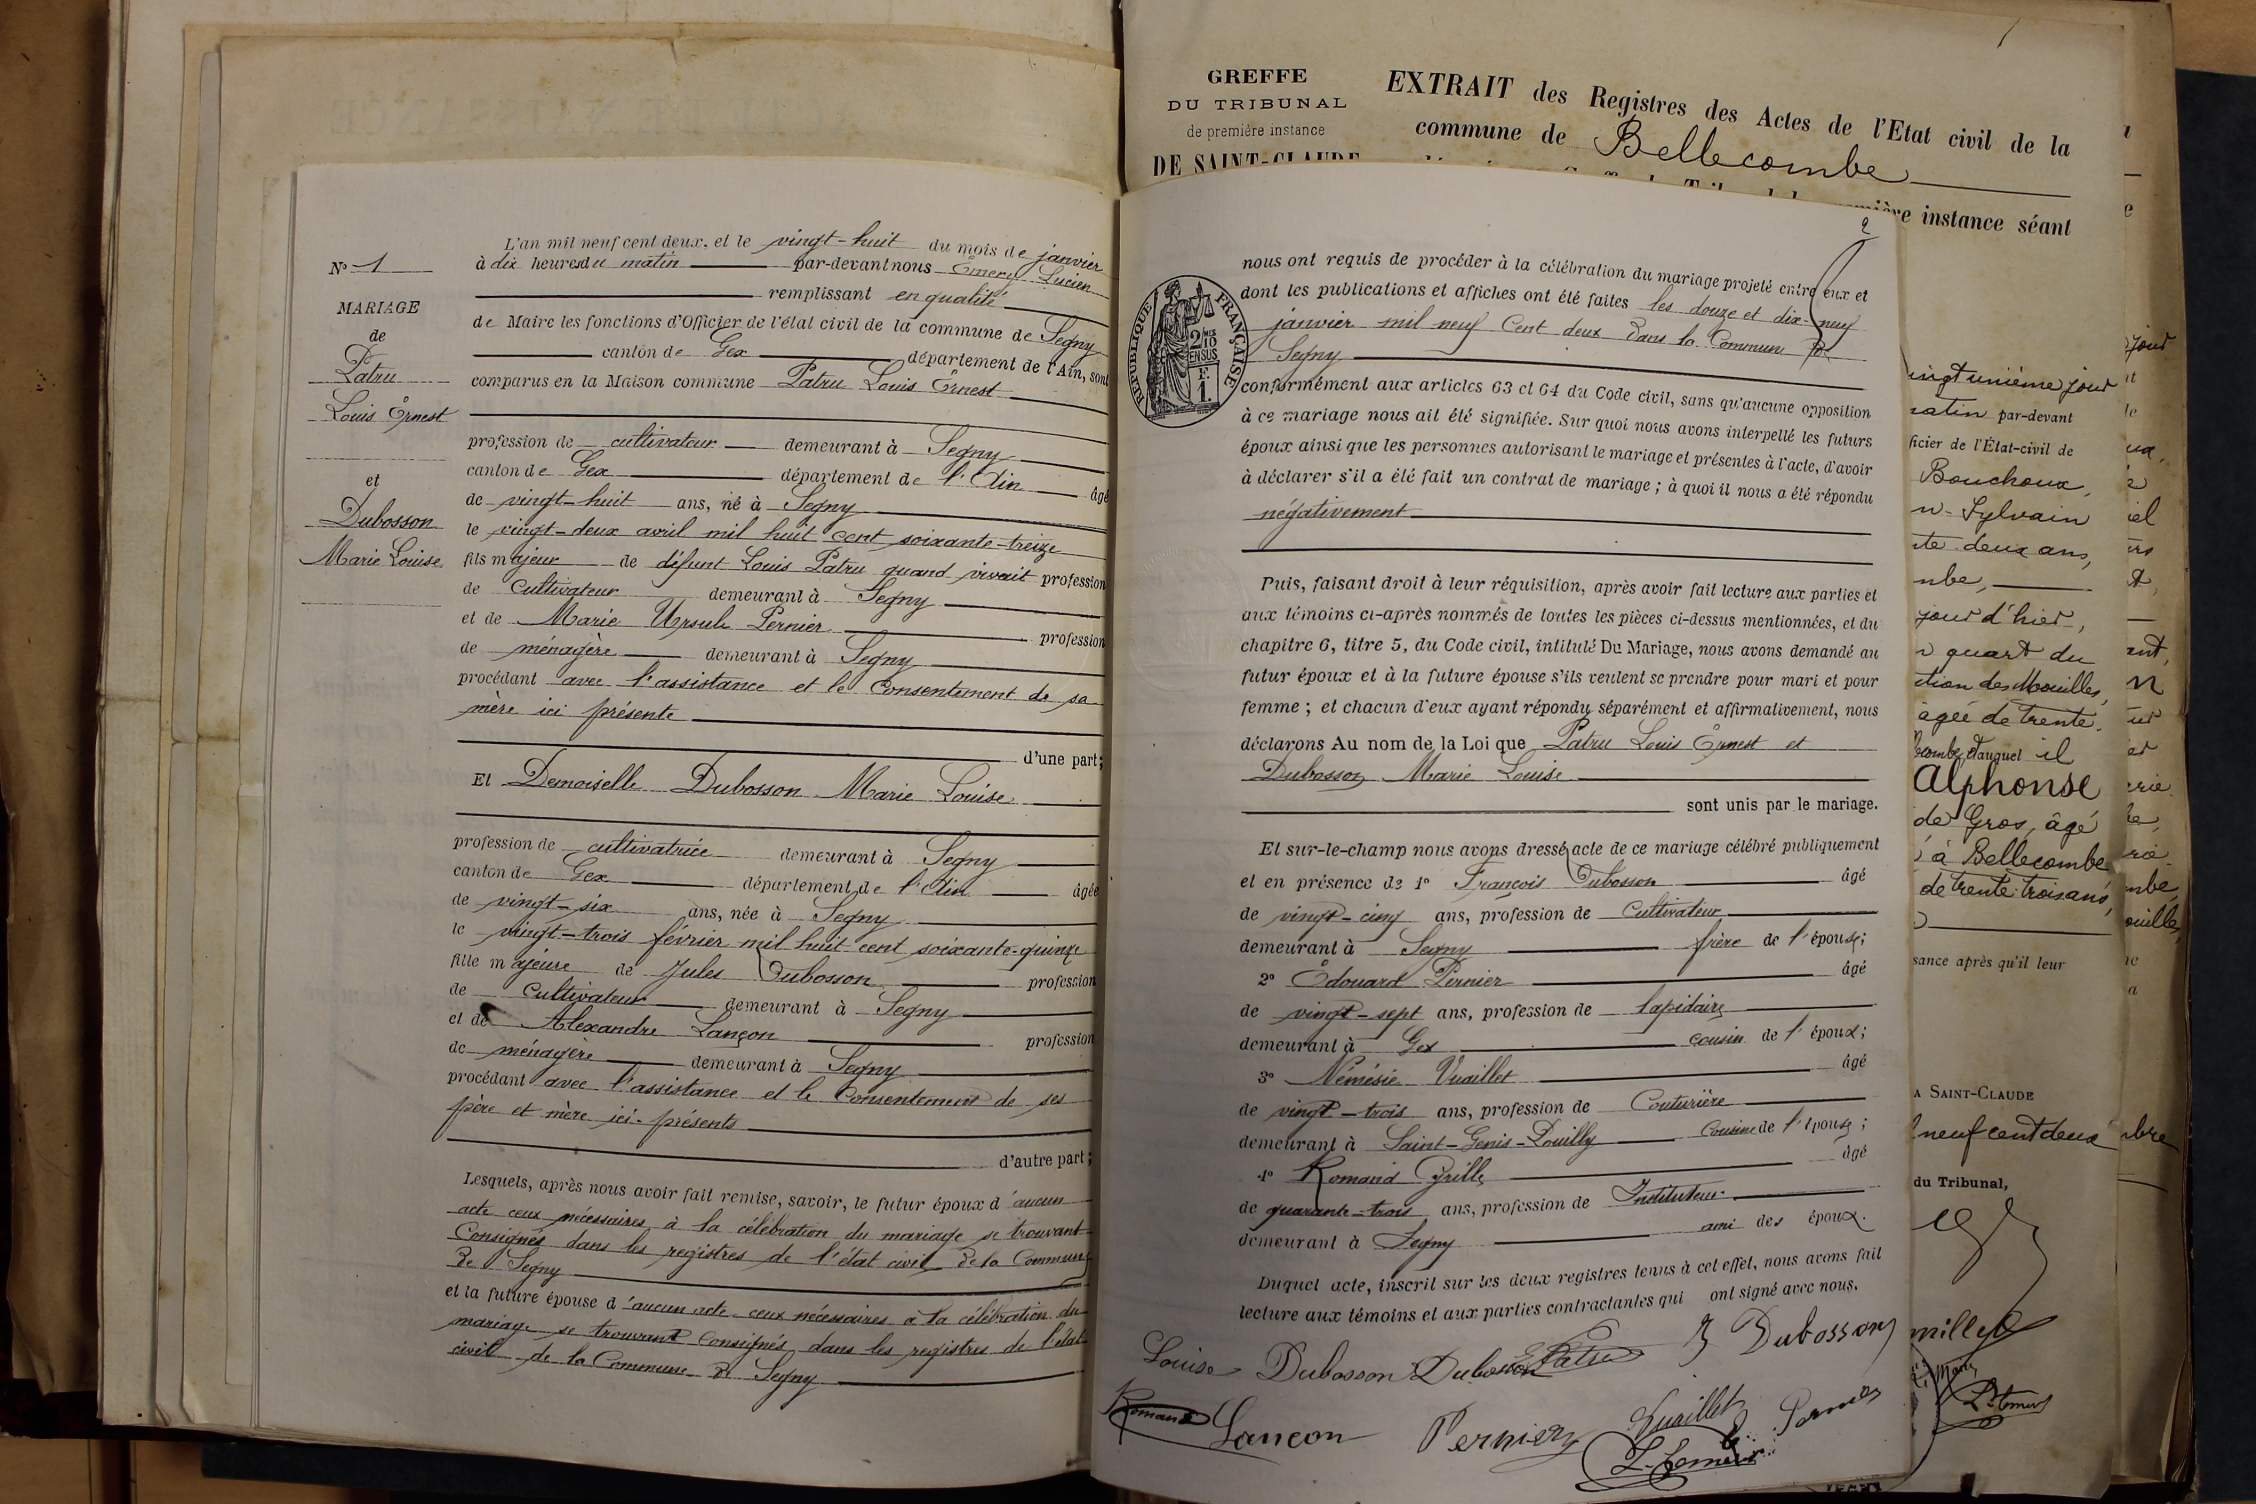 N° 1
MARIAGE
de
Patru
Louis Ernest
et
Dubosson
Marie Louise
L'an mil neuf cent deux, et le vingt-huit du mois de janvier
à dix heures du matin par-devant nous Émery Lucien
remplissant en qualité
de Maire les fonctions d'Officier de l'état civil de la commune de Segny
canton de Gex département de l'Ain, sont
comparus en la Maison commune Patru Louis Ernest
profession de cultivateur demeurant à Segny
canton de Gex département de l'Ain âgé
de vingt-huit ans, né à Segny
le vingt-deux avril mil huit cent soixante-treize
fils majeur de défunt Louis Patru quand vivait profession
de Cultivateur demeurant à Segny
et de Marie Ursule Pernier profession
de ménagère demeurant à Segny
procédant avec l'assistance et le consentement de sa
mère ici présente
d'une part;
Et Demoiselle Dubosson Marie Louise
profession de cultivatrice demeurant à Segny
canton de Gex département de l'Ain âgée
de vingt-six ans, née à Segny
le vingt-trois février mil huit cent soixante-quinze
fille majeure de Jules Dubosson profession
de Cultivateur demeurant à Segny
et de Alexandre Lançon profession
de ménagère demeurant à Segny
procédant avec l'assistance et le Consentement de ses
père et mère ici présents
d'autre part;
Lesquels, après nous avoir fait remise, savoir, le futur époux d'aucun
acte ceux nécessaires à la célébration du mariage se trouvant
Consignés dans les registres de l'état civil de la Commune
de Segny
et la future épouse d'aucun acte ceux nécessaires à la célébration du
mariage se trouvant Consignés dans les registres de l'état
civil de la Commune de Segny
GREFFE
DU TRIBUNAL
de première instance
DE SAINT-CLAUDE
EXTRAIT des Registres des Actes de l'Etat civil de la
commune de Bellecombe
instance séant
2
RÉPUBLIQUE FRANÇAISE
2/10 EN SUS
F. 1.
nous ont requis de procéder à la célébration du mariage projeté entre eux et
dont les publications et affiches ont été faites les douze et dix-neuf
janvier mil neuf Cent deux dans la Commune de
Segny
conformément aux articles 63 et 64 du Code civil, sans qu'aucune opposition
à ce mariage nous ait été signifiée. Sur quoi nous avons interpellé les futurs
époux ainsi que les personnes autorisant le mariage et présentes à l'acte, d'avoir
à déclarer s'il a été fait un contrat de mariage; à quoi il nous a été répondu
négativement
Puis, faisant droit à leur réquisition, après avoir fait lecture aux parties et
aux témoins ci-après nommés de toutes les pièces ci-dessus mentionnées, et du
chapitre 6, titre 5, du Code civil, intitulé Du Mariage, nous avons demandé au
futur époux et à la future épouse s'ils veulent se prendre pour mari et pour
femme; et chacun d'eux ayant répondu séparément et affirmativement, nous
déclarons Au nom de la Loi que Patru Louis Ernest et
Dubosson Marie Louise
sont unis par le mariage.
Et sur-le-champ nous avons dressé acte de ce mariage célébré publiquement
et en présence de 1° François Dubosson âgé
de vingt-cinq ans, profession de Cultivateur
demeurant à Segny frère de l'épouse;
2° Édouard Pernier âgé
de vingt-sept ans, profession de lapidaire
demeurant à Gex cousin de l'époux;
3° Némésie Vuaillet âgé
de vingt-trois ans, profession de Couturière
demeurant à Saint-Genis-Pouilly Cousine de l'épouse;
4° Romand Cyrille âgé
de quarante-trois ans, profession de Instituteur
demeurant à Segny ami des époux.
Duquel acte, inscrit sur les deux registres tenus à cet effet, nous avons fait
lecture aux témoins et aux parties contractantes qui ont signé avec nous.
Louise Dubosson Dubosson E Patru J Dubosson
Romand Lançon Pernier Vuaillet E. Pernier
L. Emery
ingt unième jour
matin par-devant
ficier de l'État-civil de
Bouchoux,
n Sylvain
nte deux ans,
mbe,
jour d'hier,
quart du
ction des Mouilles,
âgée de trente
combe, auquel il
Alphonse
de Gros, âgé
à Bellecombe
de trente trois ans,
sance après qu'il leur
A SAINT-CLAUDE
neuf cent deux
du Tribunal,